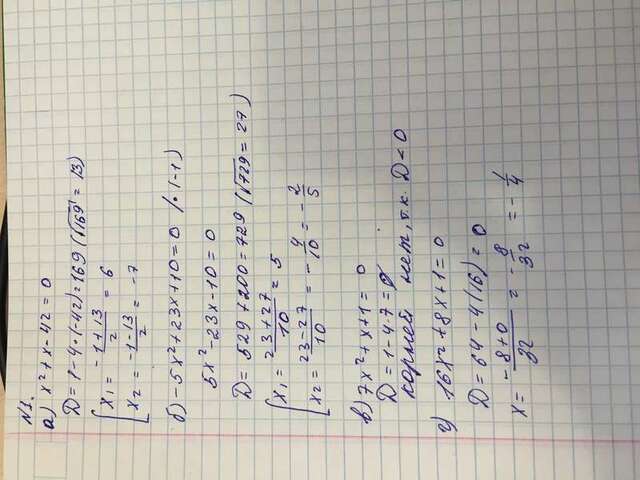 №1.
а) x² + x - 42 = 0
D = 1 - 4 · (-42) = 169 (√169 = 13)
x₁ = (-1 + 13)/2 = 6
x₂ = (-1 - 13)/2 = -7
б) -5x² + 23x + 10 = 0 / · (-1)
5x² - 23x - 10 = 0
D = 529 + 200 = 729 (√729 = 27)
x₁ = (23 + 27)/10 = 5
x₂ = (23 - 27)/10 = -4/10 = -2/5
в) 7x² + x + 1 = 0
D = 1 - 4 · 7 =
корней нет, т.к. D < 0
г) 16x² + 8x + 1 = 0
D = 64 - 4(16) = 0
x = (-8 + 0)/32 = -8/32 = -1/4